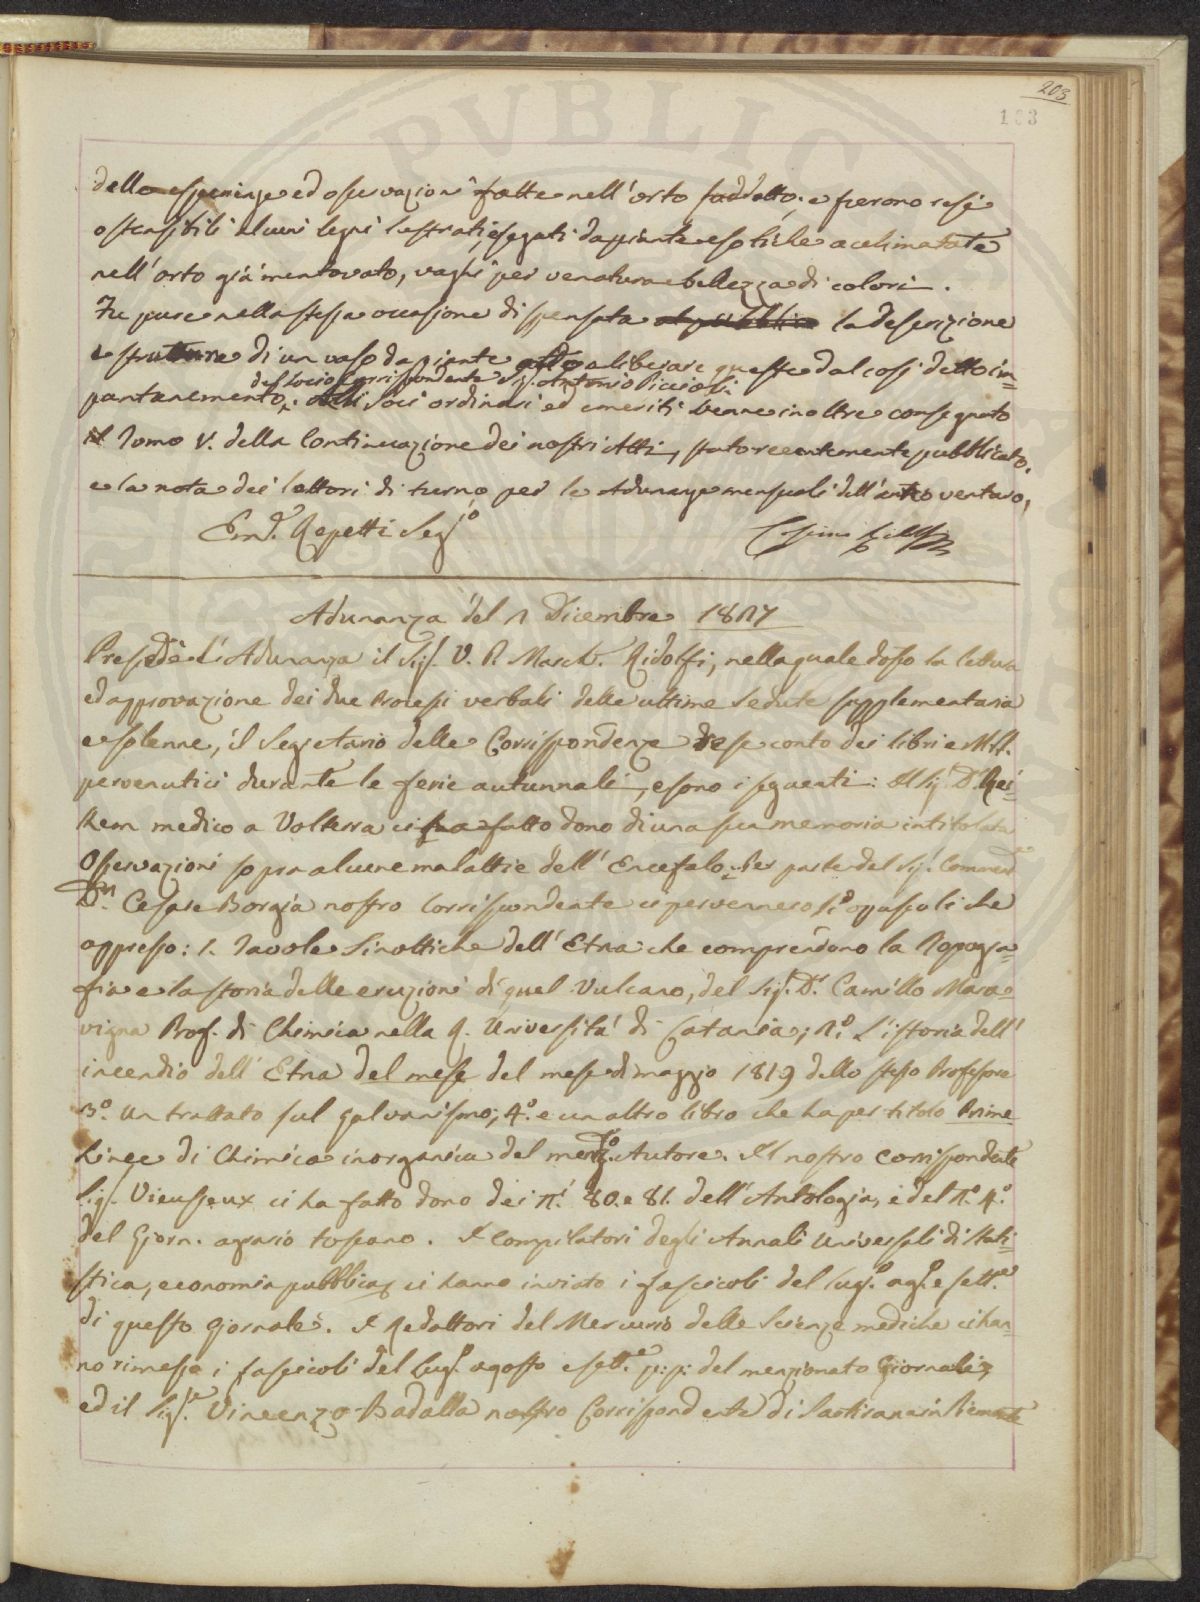 203
103
delle esperienze ed osservazioni fatte nell'orto suddetto; e furono resi
ostensibili alcuni legni lustrati, segati da piante esotiche acclimatate
nell'orto già mentovato, vaghi per venatura e bellezza di colori.
Fu pure nella stessa occasione dispensata al pubblico la descrizione
e struttura di un vaso da piante atto a liberare queste dal così detto im=
del Socio Corrispondente Sig. Antonio Piccioli.
pantanamento. Ai Soci ordinari ed emeriti venne inoltre consegnato
il Tomo V. della Continuazione dei nostri Atti, stato recentemente pubblicato,
e la nota dei lettori di turno per le Adunanze mensuali dell'anno venturo,
Em. Repetti Seg.io
Cosimo Ridolfi
Adunanza del 2 Dicembre 1827
Presiedè l'Adunanza il Sig. V. P. March. Ridolfi, nella quale dopo la lettura
ed approvazione dei due Processi verbali delle ultime Sedute supplementaria
e solenne, il Segretario delle Corrispondenze rese conto dei libri e MSS.
pervenutici durante le ferie autunnali, e sono i seguenti: Il Sig. Dr.
medico a Volterra ci ha fatto dono di una sua memoria intitolata
Osservazioni sopra alcune malattie dell'Encefalo. Per parte del Sig. Commend.e
Dn. Cesare Borgia nostro Corrispondente ci pervennero gli opuscoli che
appresso: 1. Tavole Sinottiche dell'Etna che comprendono la Topogra=
fia e la storia delle eruzioni di quel Vulcano, del Sig. Dr. Camillo Mara=
vigna Prof. di Chimica nella R. Università di Catania; 2.º L'istoria dell'
incendio dell'Etna del mese del mese di maggio 1819 dello stesso Professore
3º. Un trattato sul galvanismo; 4º. e un altro libro che ha per titolo Prime
Linee di Chimica inorganica del menz.to Autore. Il nostro corrispondente
Sig. Vieusseux ci ha fatto dono dei n.i 80. e 81. dell'Antologia, e del n.º 4.º
del Giorn. agrario toscano. I Compilatori degli Annali Universali di Stati=
stica, economia pubblica ci hanno inviato i fascicoli del lug.º ag.º e sett.e
di questo Giornale. I Redattori del Mercurio delle Scienze mediche ci han=
no rimesso i fascicoli del lug.º agosto e sett.e p:p: del menzionato Giornale;
ed il Sig.e Vincenzo Badalla nostro Corrispondente di in Piemonte